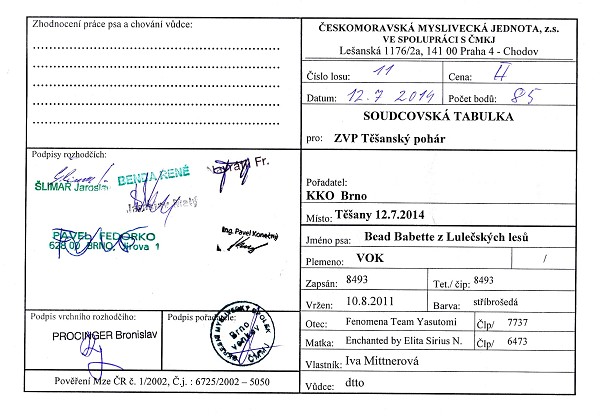 Zhodnocení práce psa a chování vůdce:
Podpisy rozhodčích:
ŠLIMAR Jaroslav
BENDA RENÉ
Fr.
PAVEL FEDORKO
628 00 BRNO, Jírova 1
Ing. Pavel Konečný
Podpis vrchního rozhodčího:
PROCINGER Bronislav
Podpis pořadatele:
Brno
venkov
ČMMJ
Pověření Mze ČR č. 1/2002, Č.j. : 6725/2002 – 5050
ČESKOMORAVSKÁ MYSLIVECKÁ JEDNOTA, z.s.
VE SPOLUPRÁCI S ČMKJ
Lešanská 1176/2a, 141 00 Praha 4 - Chodov
Číslo losu: 11 Cena: II
Datum: 12.7 2014 Počet bodů: 85
SOUDCOVSKÁ TABULKA
pro: ZVP Těšanský pohár
Pořadatel:
KKO Brno
Místo: Těšany 12.7.2014
Jméno psa: Bead Babette z Lulečských lesů
Plemeno: VOK /
Zapsán: 8493 Tet./ čip: 8493
Vržen: 10.8.2011 Barva: stříbrošedá
Otec: Fenomena Team Yasutomi Člp/ 7737
Matka: Enchanted by Elita Sirius N. Člp/ 6473
Vlastník: Iva Mittnerová
Vůdce: dtto